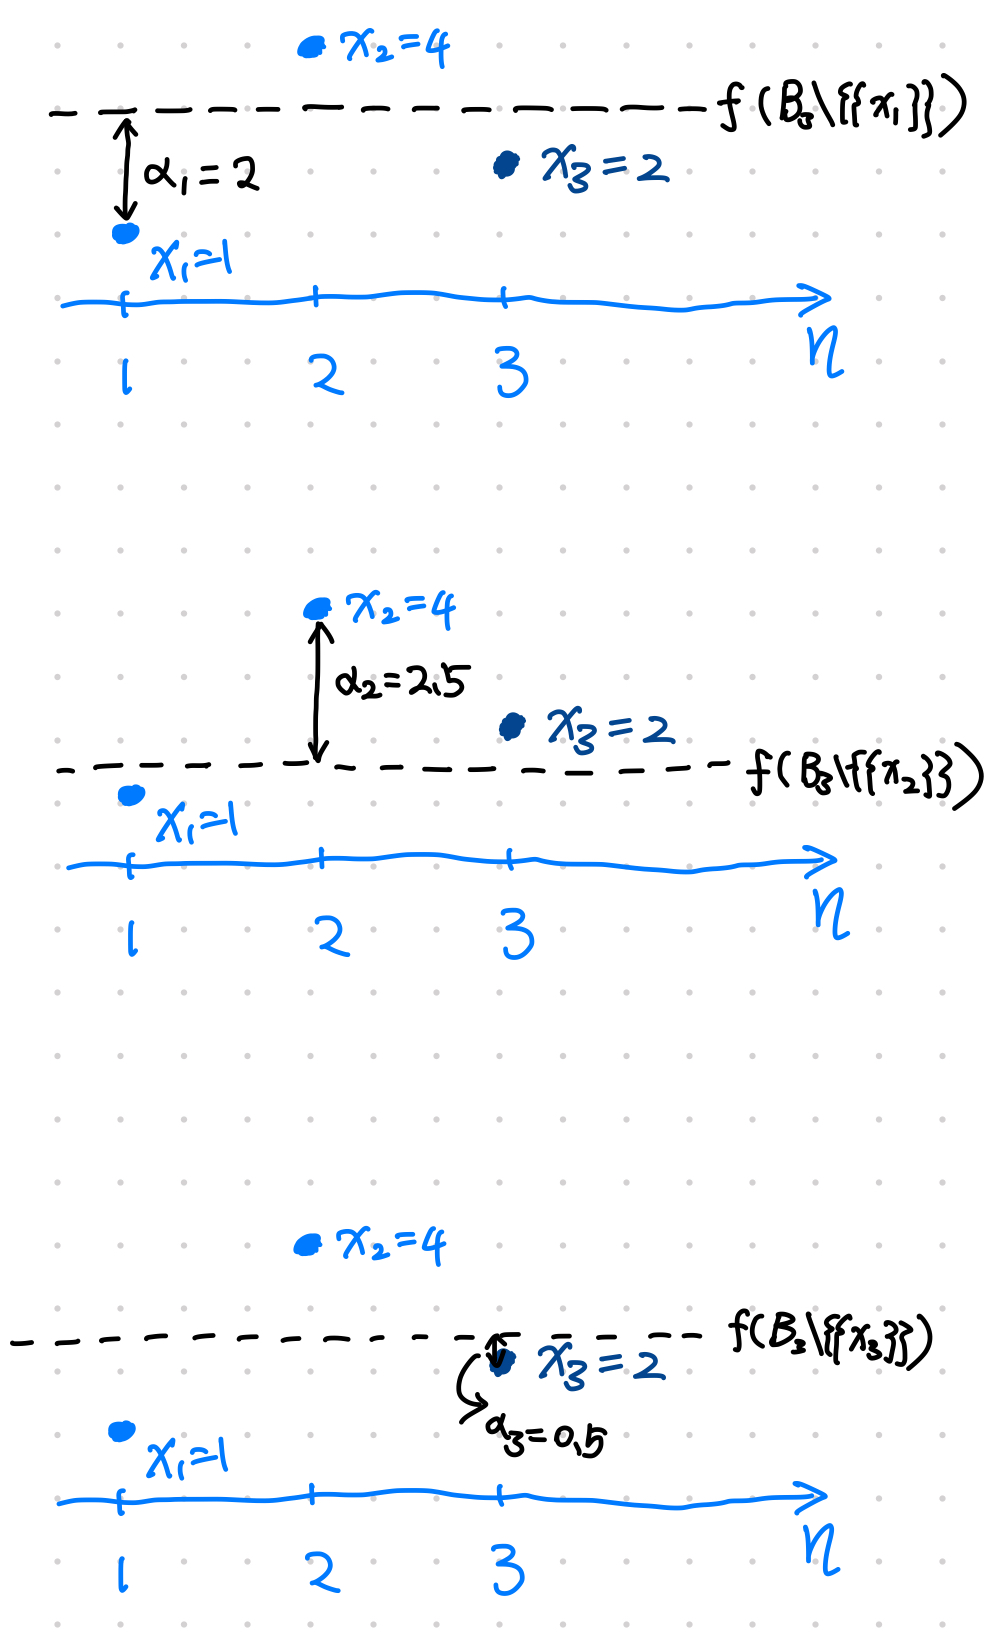 x₂=4
f(B₃\{{x₁}})
α₁=2
x₃=2
x₁=1
1 2 3 n
x₂=4
α₂=2.5
x₃=2
f(B₃\{{x₂}})
x₁=1
1 2 3 n
x₂=4
f(B₃\{{x₃}})
x₃=2
α₃=0.5
x₁=1
1 2 3 n